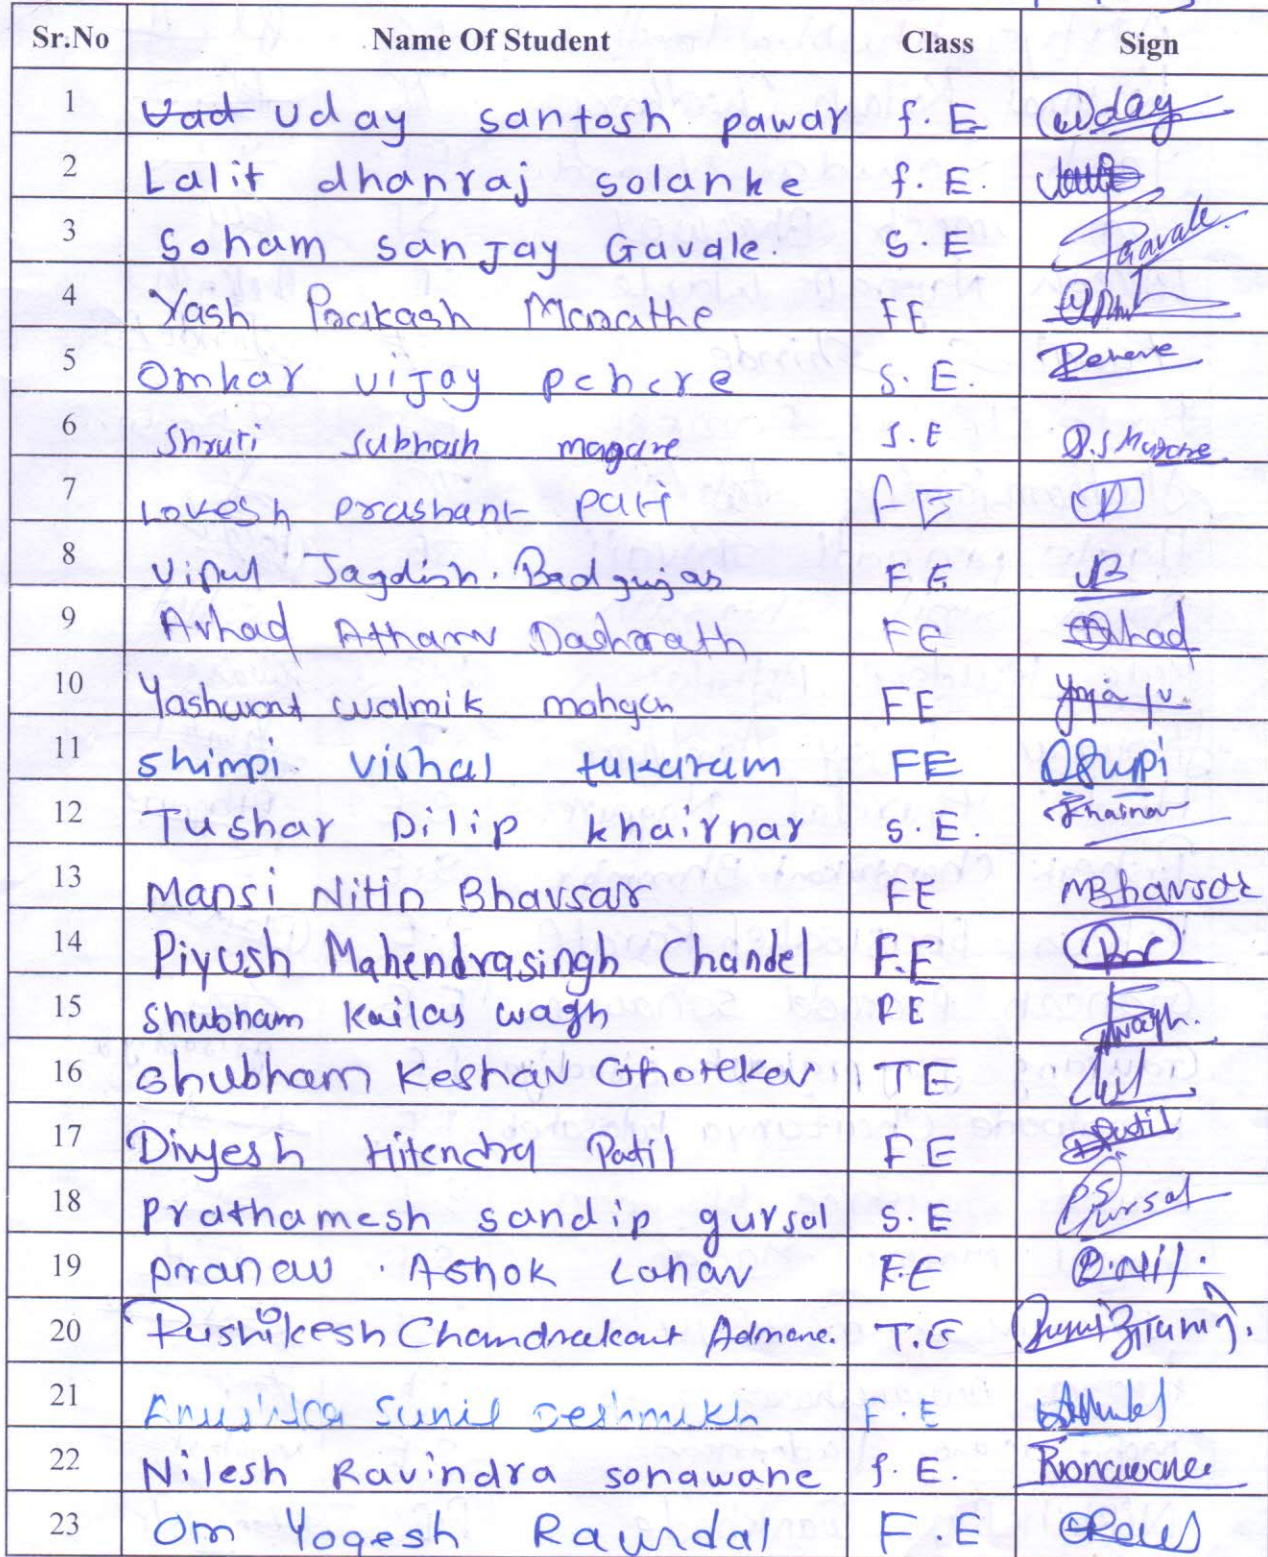 Sr.No Name Of Student Class Sign
1 Uad Uday santosh pawar f. E Uday
2 Lalit dhanraj solanke f. E.
3 Soham sanJay Gavale. S. E Gavale.
4 Yash Prakash Marathe FE
5 Omkar vijay pehere S. E. Pehere
6 Shruti Subhash magare S.E S.S Magare
7 Lovesh prashant patil f E
8 Vipul Jagdish. Badgujar F E VB
9 Avhad Atharv Dasharath FE Avhad
10 Yashwant walmik mahajan FE
11 shimpi vishal tukaram FE
12 Tushar Dilip khairnar S. E. Khairnar
13 Mansi Nitin Bhavsar FE MBhavsar
14 Piyush Mahendrasingh Chandel F.E
15 Shubham Kailas wagh FE wagh.
16 Shubham Keshav Ghotekar TE
17 Divyesh Hitendra Patil FE DPatil
18 Prathamesh sandip gursal S. E PSGursal
19 pranav . Ashok Lohar F.E
20 Rushikesh Chandrakant Admane. T.E
21 Anushka Sunil Deshmukh F. E
22 Nilesh Ravindra sonawane f. E. Rsonawane
23 Om Yogesh Raundal F.E